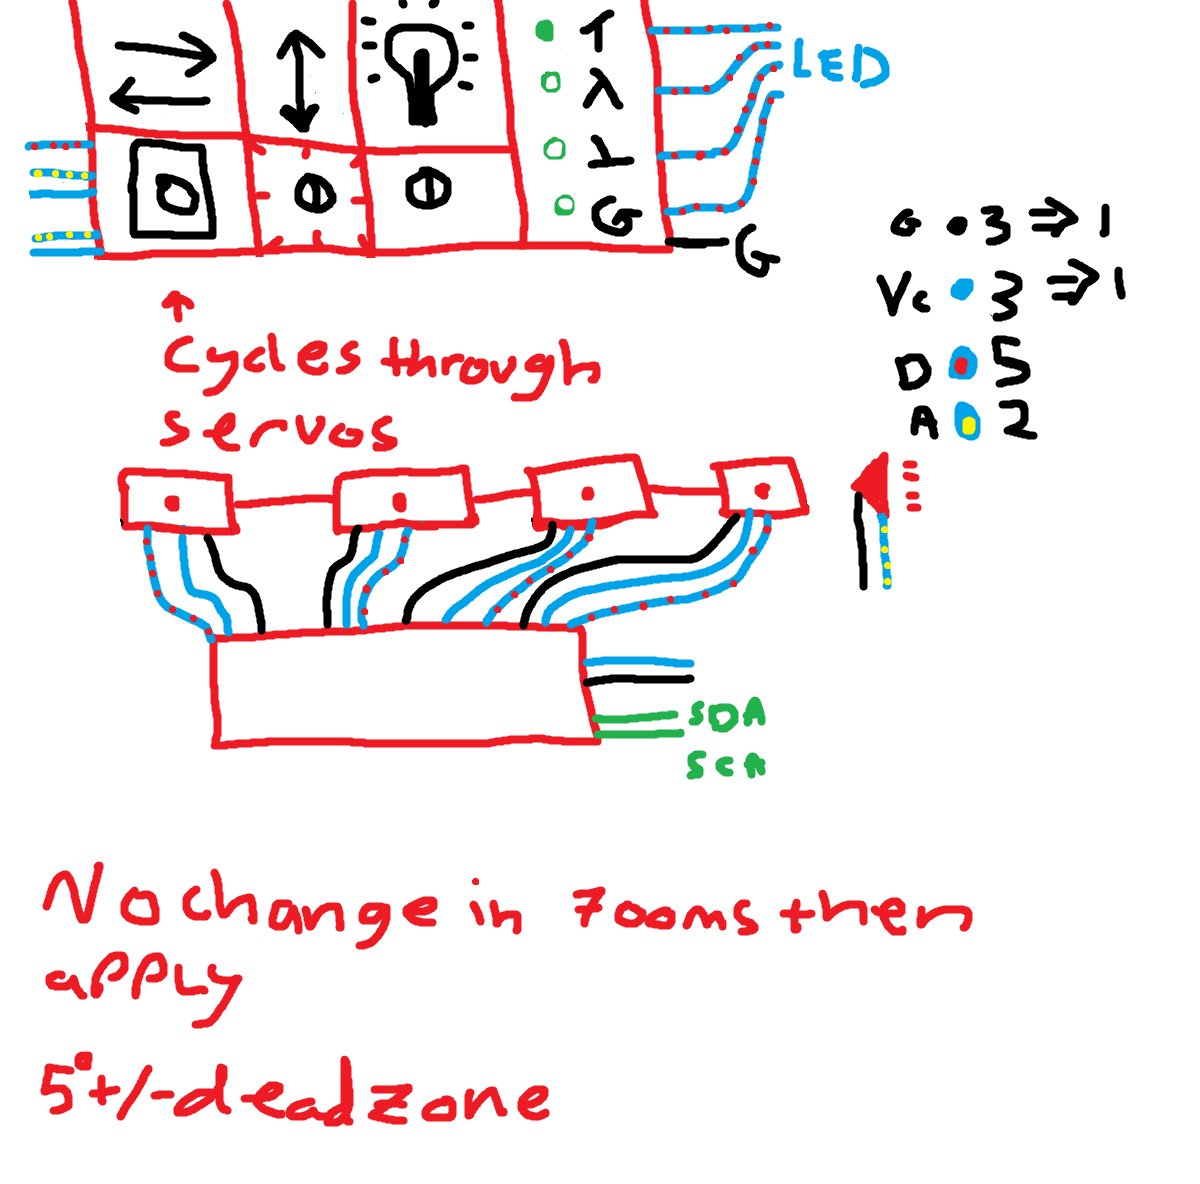 LED
G
G
G • 3 ⇒ 1
Vc • 3 ⇒ 1
D • 5
A • 2
Cycles through
servos
SDA
No change in 700ms then
apply
5°+/- deadzone